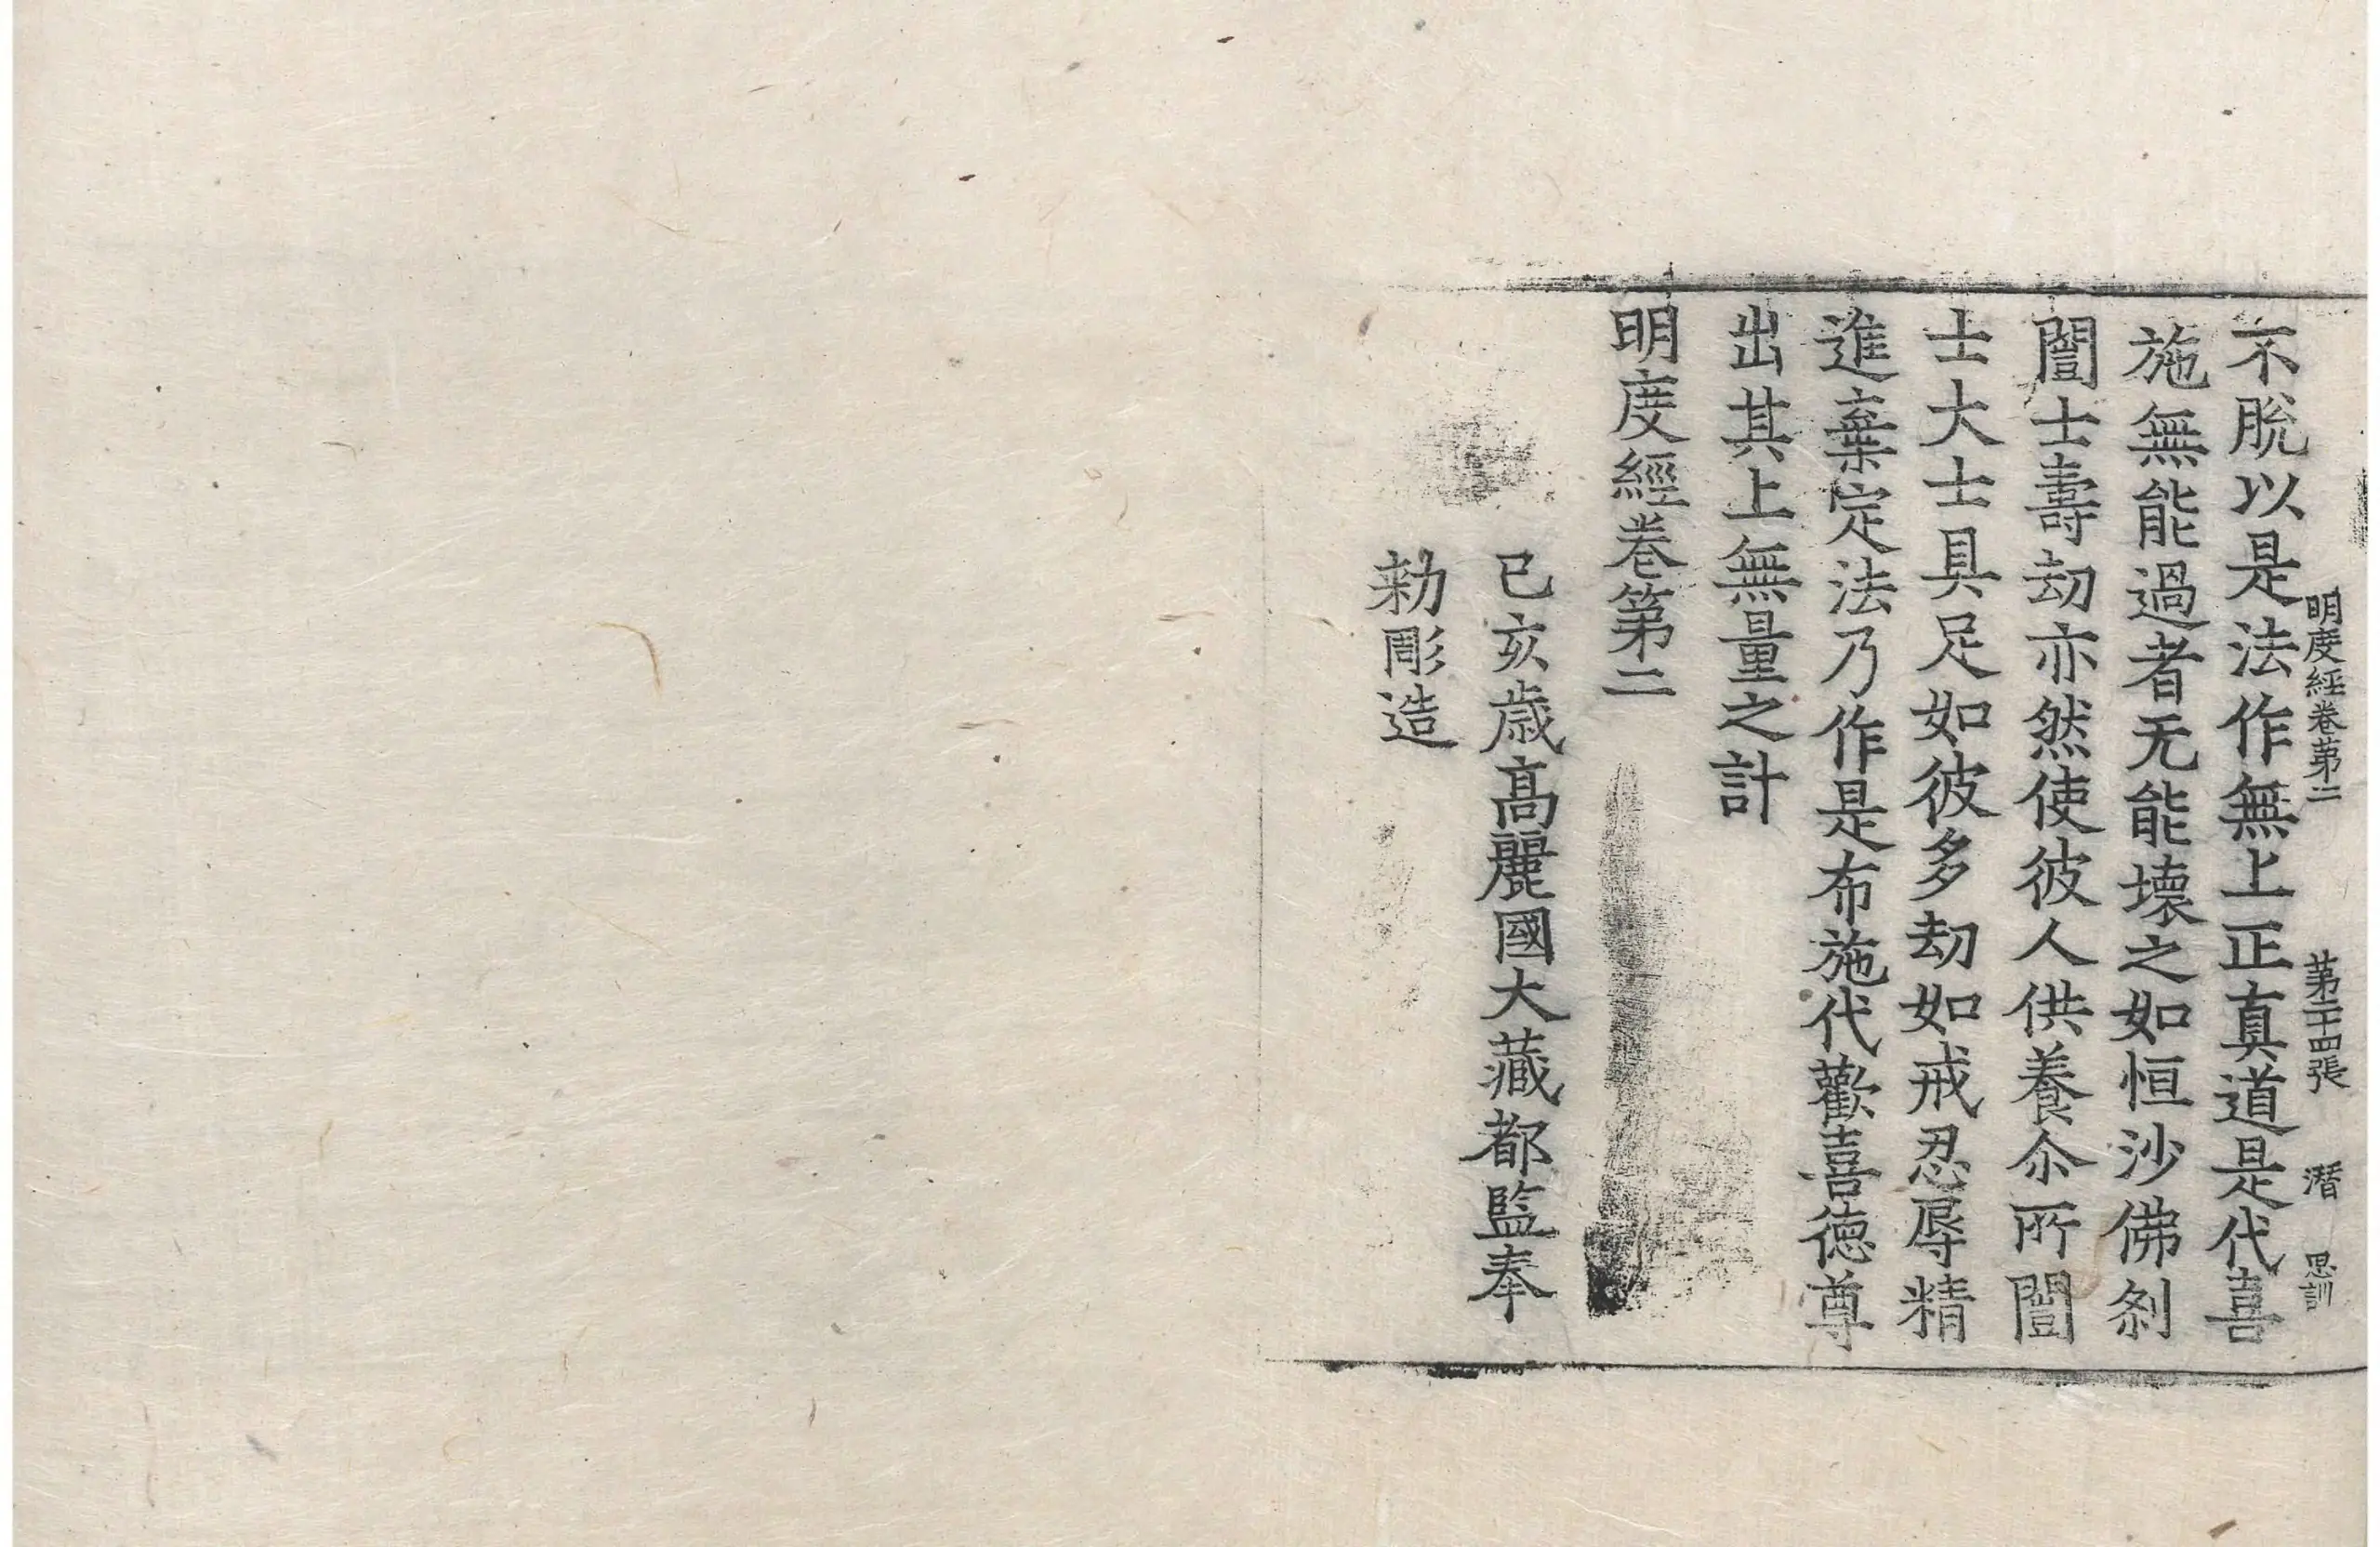 明度經卷苐二 苐二十四張 潛 思訓
不脫以是法作無上正真道是代喜
施無能過者无能壞之如恒沙佛剎
闓士壽劫亦然使彼人供養尒所闓
士大士具足如彼多劫如戒忍辱精
進棄定法乃作是布施代歡喜德尊
出其上無量之計
明度經卷第二
己亥歲高麗國大藏都監奉
勑彫造